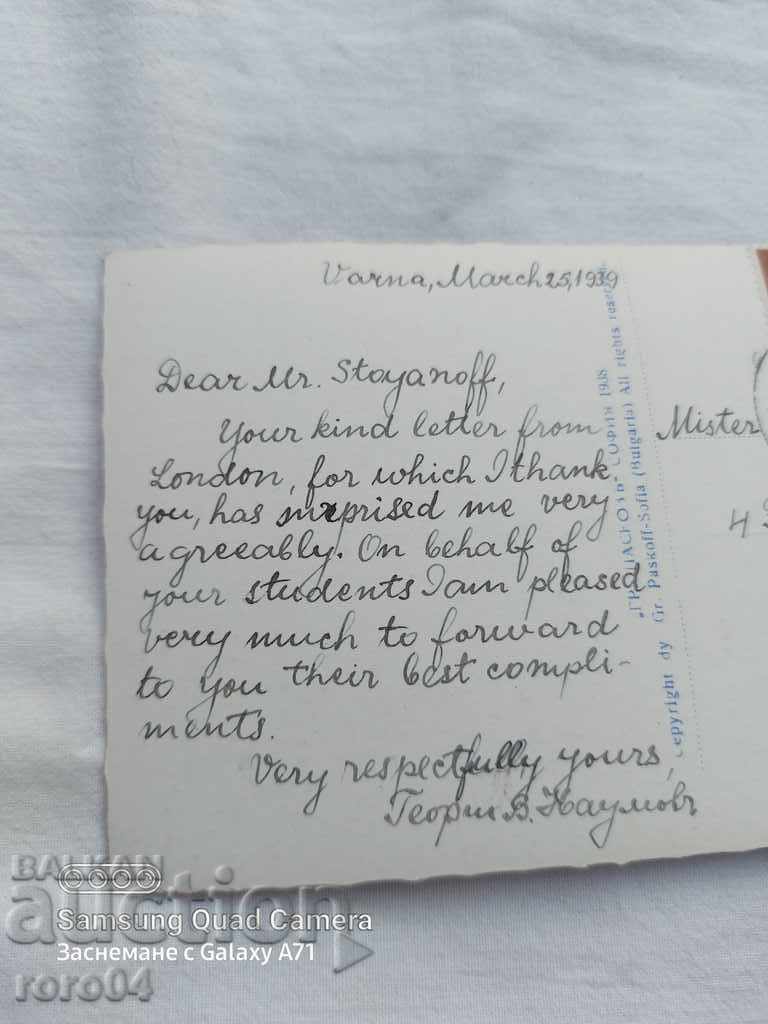 Varna, March 25, 1939
Dear Mr. Stoyanoff,
Your kind letter from
London, for which I thank
you, has surprised me very
agreeably. On behalf of
your students I am pleased
very much to forward
to you their best compli-
ments.
Very respectfully yours,
Георги В. Наумовъ
Mister
4
"ГР. ПАСКОВЪ" СОФИЯ 1938
epyright dy Gr. Paskoff-Sofia (Bulgaria) All rights reser
BALKAN
auction
Samsung Quad Camera
Заснемане с Galaxy A71
roro04